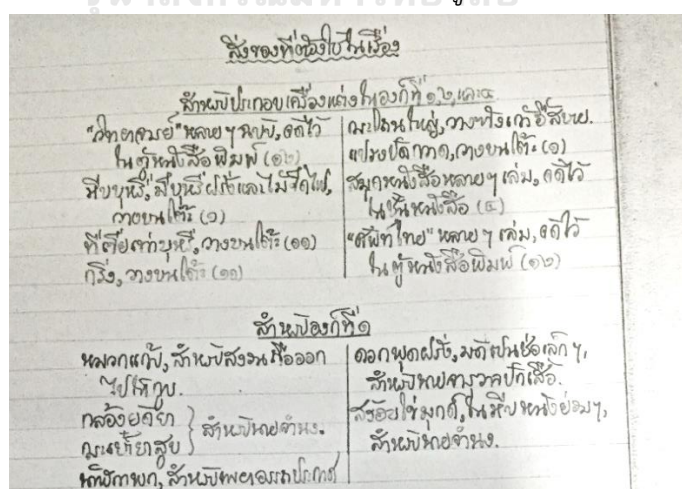 สิ่งของที่ต้องใช้ในเรื่อง
สำหรับประกอบเครื่องแต่งในองก์ที่ ๑,๒,และ๔
"วิทยาจารย์" หลายๆฉบับ, จดไว้
ในตู้หนังสือพิมพ์ (๑๒)
หีบบุหรี่, มีบุหรี่ฝรั่งและไม้ขีดไฟ,
วางบนโต๊ะ (๑)
ที่เขี่ยเถ้าบุหรี่, วางบนโต๊ะ (๑๑)
กริ่ง, วางบนโต๊ะ (๑๑)
ใหญ่, วางเก้าอี้
แปรงปัดกวาด, วางบนโต๊ะ (๑)
สมุดหนังสือหลายๆเล่ม, จดไว้
ในชั้นหนังสือ (๔)
"ศัพท์ไทย" หลายๆ เล่ม, จดไว้
ในตู้หนังสือพิมพ์ (๑๒)
สำหรับองก์ที่๑
หมวกแก๊ป, สำหรับสงวนถือออก
ไปให้
กล้องยัดยา
ยาสูบ
สำหรับนายจำนง.
นาฬิกาพก, สำหรับ
ดอกพุดฝรั่ง, มัดเป็นช่อเล็กๆ,
สำหรับนาย ปักเสื้อ.
สร้อยไข่มุกด์, ในหีบหนังย่อมๆ,
สำหรับนายจำนง.